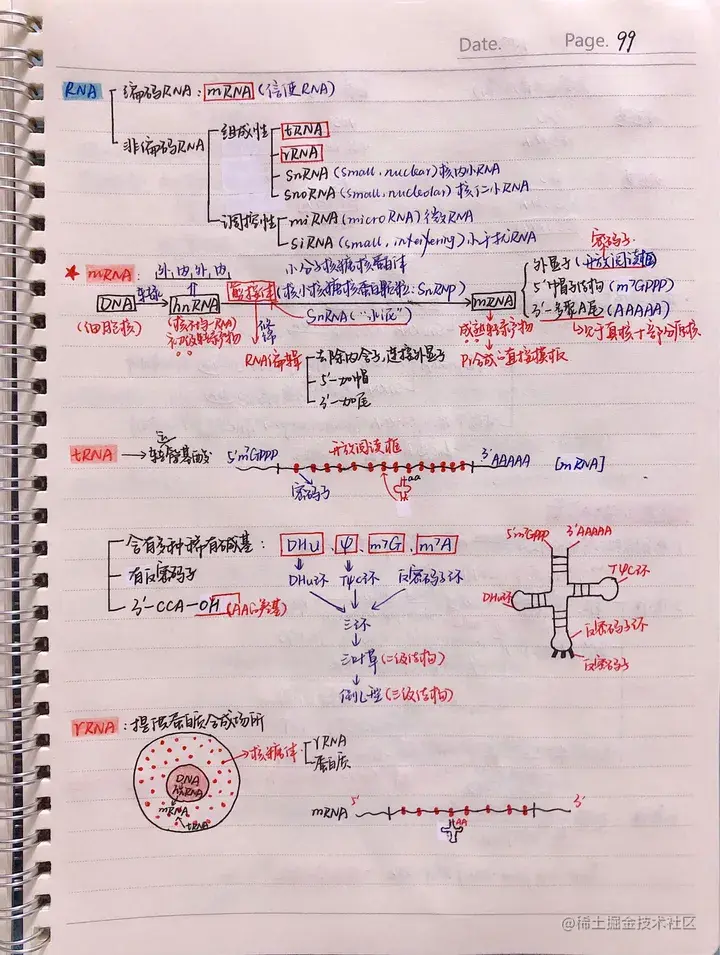 Date.
Page. 99
RNA
编码RNA：mRNA（信使RNA）
非编码RNA
组成性
tRNA
rRNA
SnRNA（small, nuclear）核内小RNA
SnoRNA（small, nucleolar）核仁小RNA
调控性
miRNA（microRNA）微RNA
SiRNA（small, interfering）小干扰RNA
★ mRNA：外,内,外,内
小分子核糖核蛋白体
密码子
外显子（开放阅读框）
DNA 转录 hnRNA 剪接体（核小核糖核蛋白颗粒：SnRNP） mRNA
5'-帽子结构（m7GPPP）
3'-多聚A尾（AAAAA）
（细胞核）
（核不均一RNA）
初级转录产物
SnRNA（"水泥"）
修饰
成熟转录产物
Pr合成的直接模板
RNA编辑
去除内含子,连接外显子
5'-加帽
3'-加尾
tRNA → 转运氨基酸
5'm7GPPP 开放阅读框 3'AAAAA [mRNA]
密码子
aa
含有多种稀有碱基：DHu、ψ、m7G、m7A
有反密码子
3'-CCA-OH
DHu环 TψC环 反密码子环
三环
三叶草（二级结构）
倒L型（三级结构）
5'm7GPPP 3'AAAAA
DHu环
TψC环
反密码子环
反密码子
rRNA：提供蛋白质合成场所
核糖体
rRNA
蛋白质
DNA
hnRNA
mRNA
tRNA
mRNA 5' 3'
AA
@稀土掘金技术社区